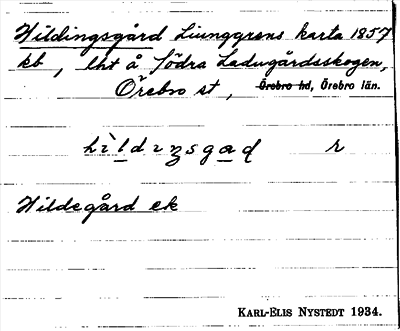 Hildingsgård Ljunggrens karta 1857
kb, lht å Södra Ladugårdsskogen,
Örebro st, Örebro hd, Örebro län.
r
Hildegård ek
KARL-ELIS NYSTEDT 1934.